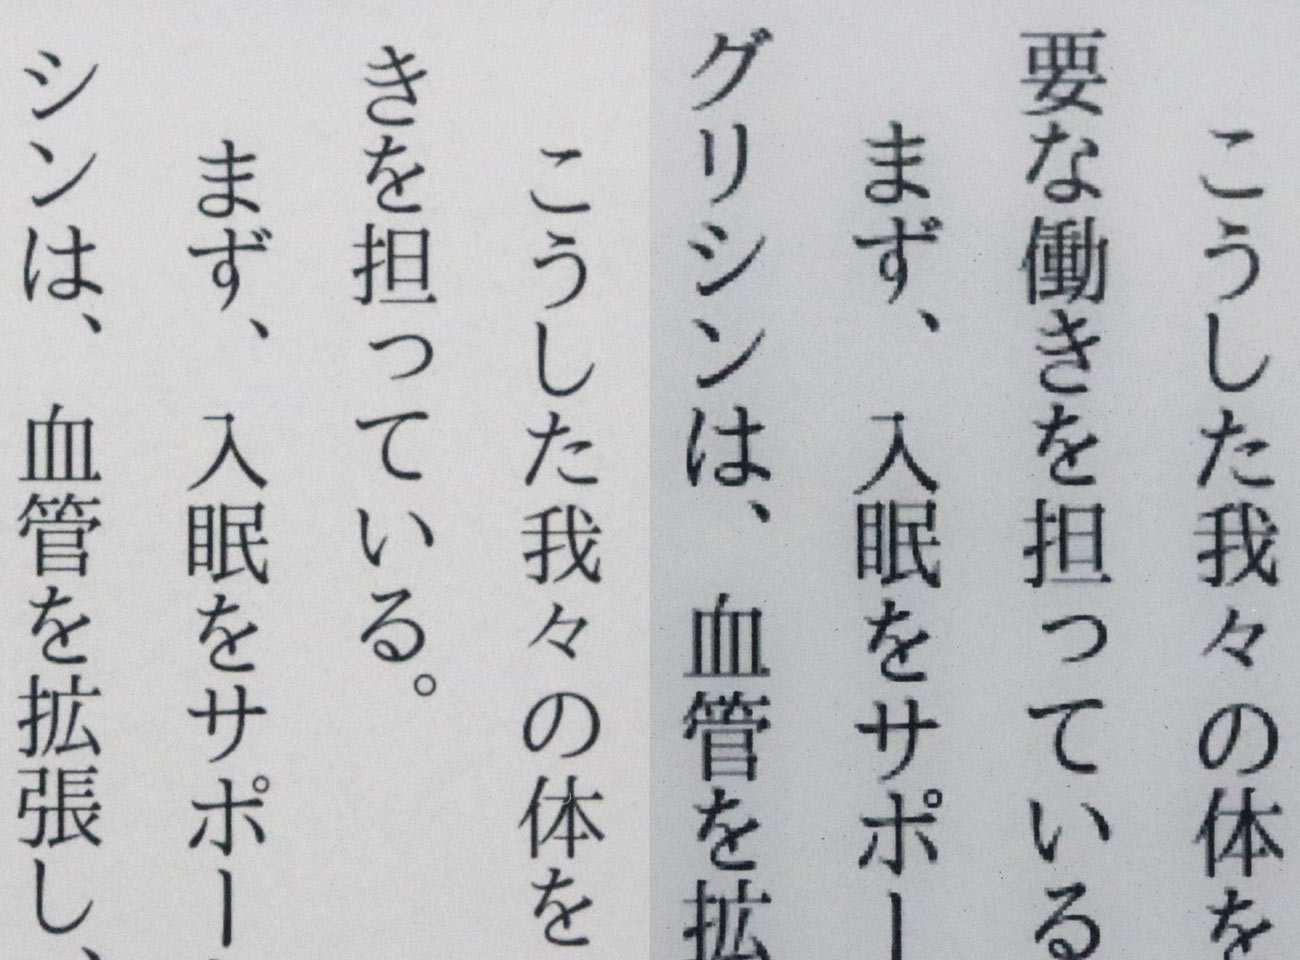 こうした我々の体を
きを担っている。
まず、入眠をサポー
シンは、血管を拡張し、
こうした我々の体を
要な働きを担っている
まず、入眠をサポー
グリシンは、血管を拡